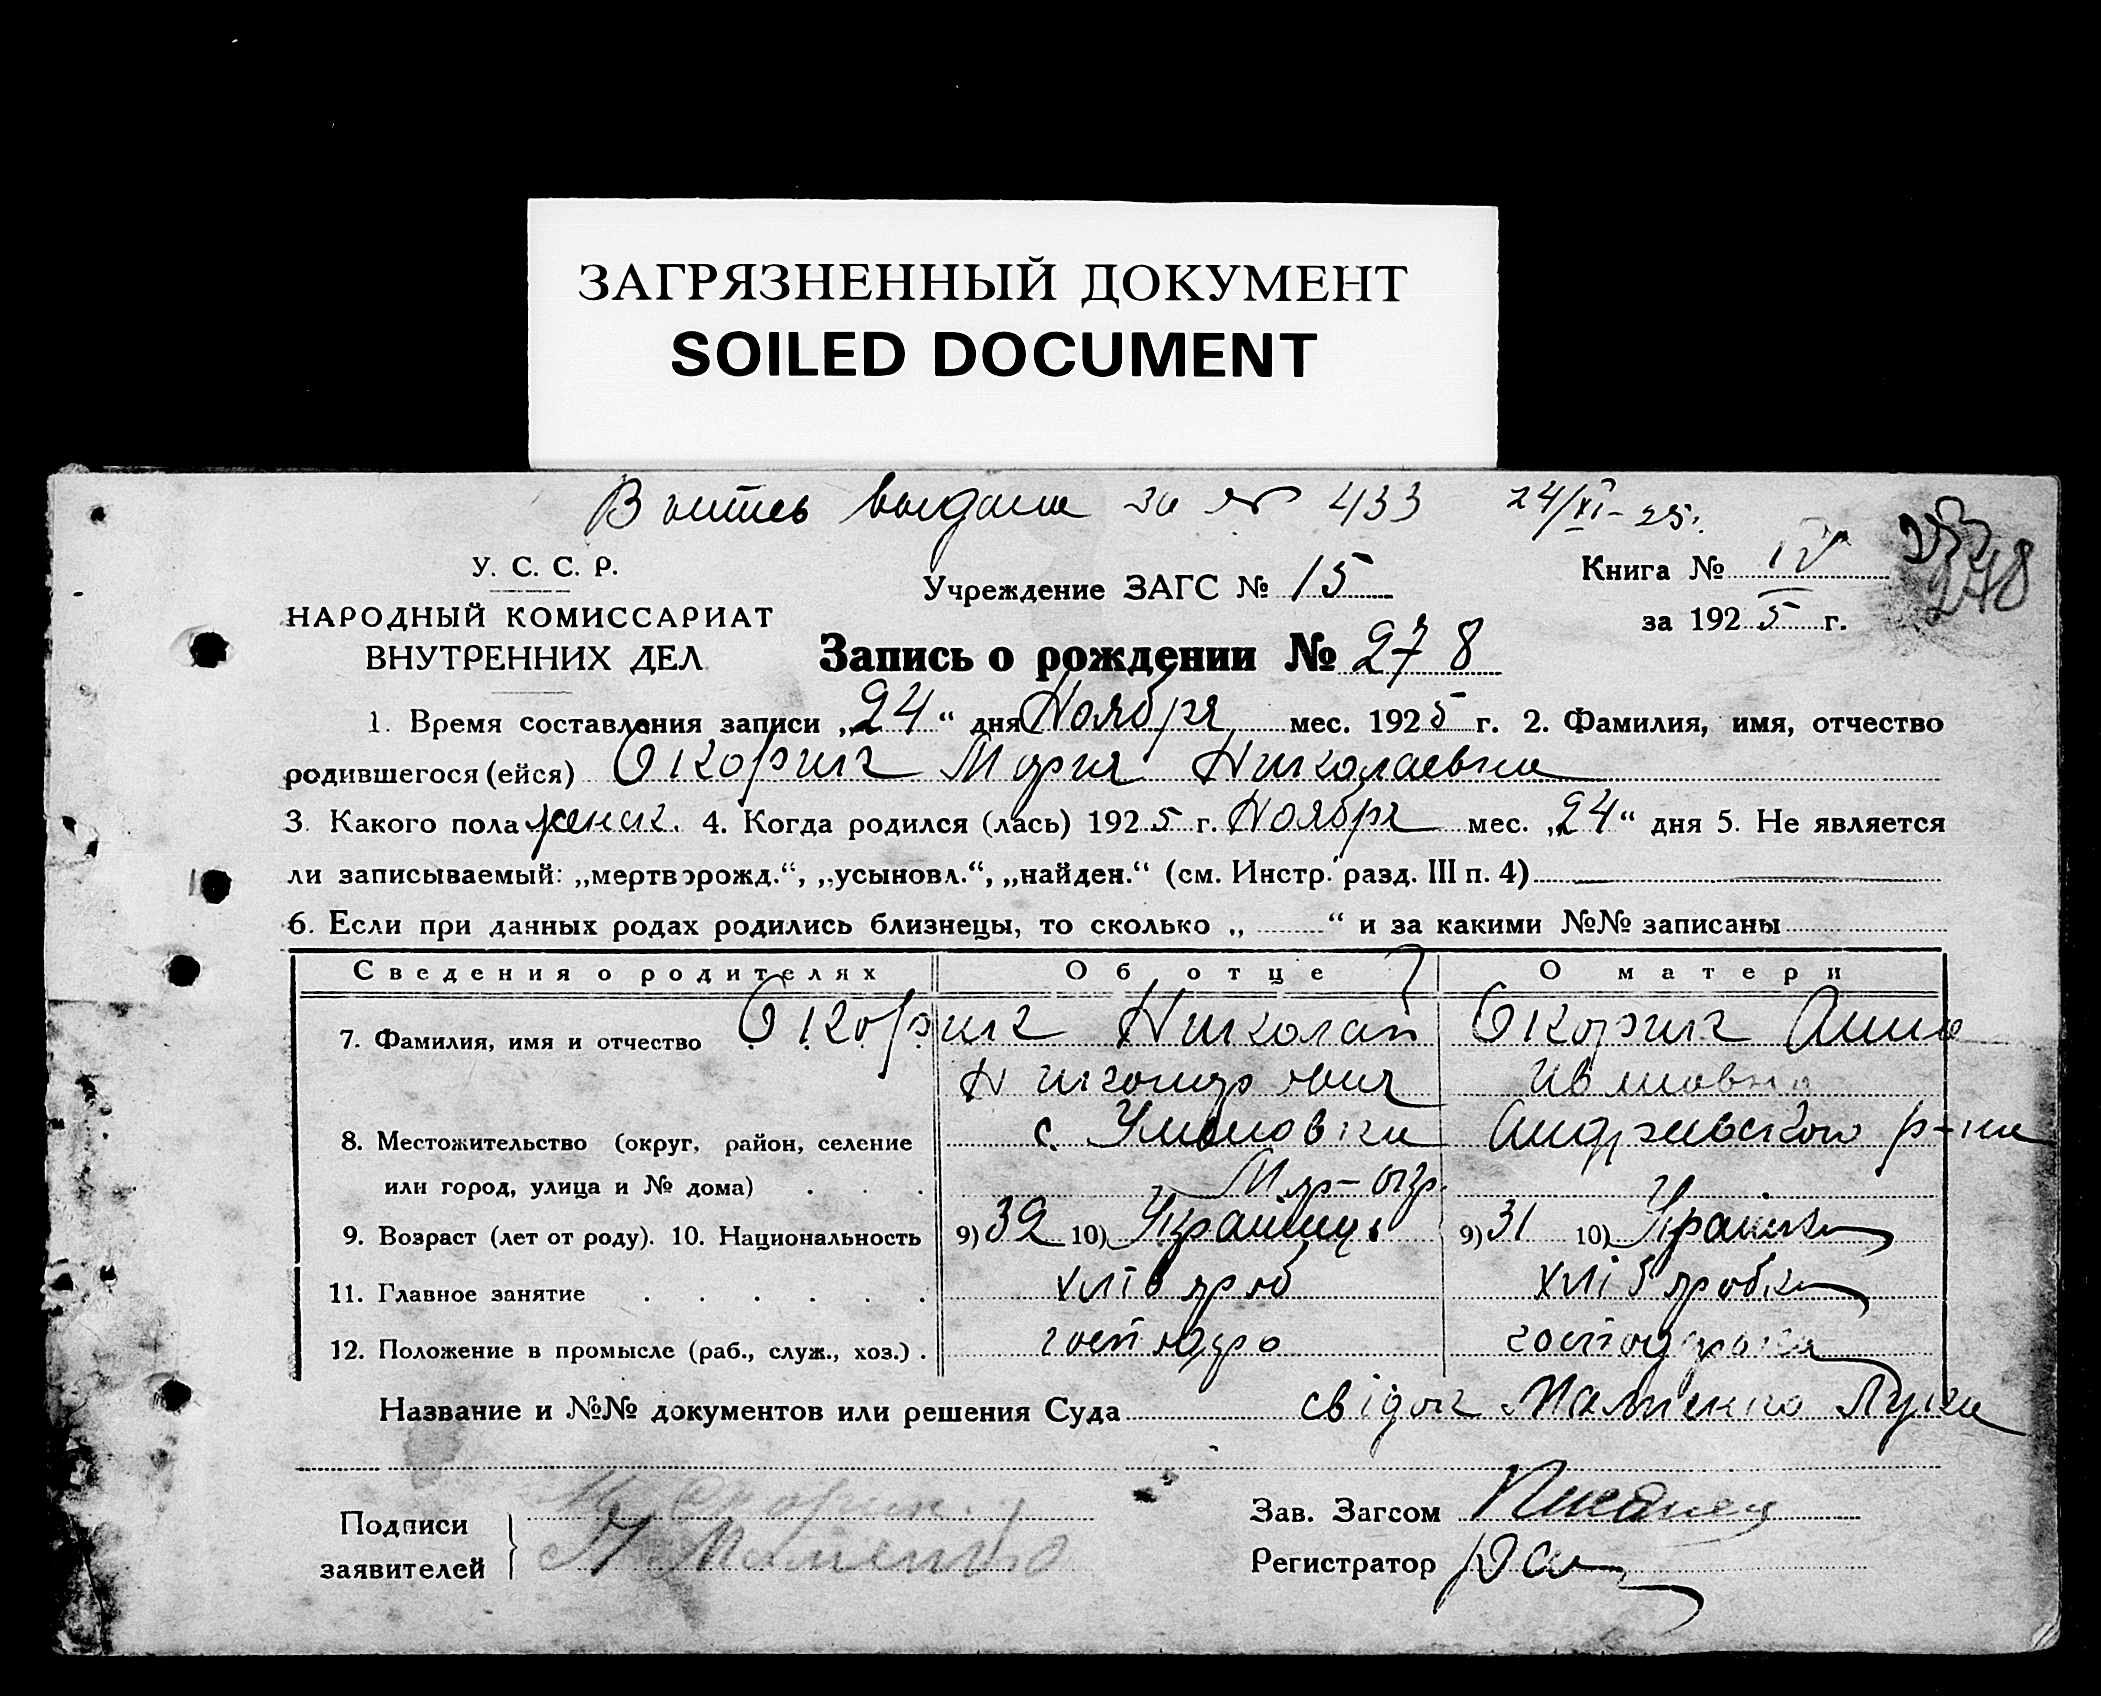 ЗАГРЯЗНЕННЫЙ ДОКУМЕНТ
SOILED DOCUMENT
выдана за № 433 24/XI-25.
У. С. С. Р.
НАРОДНЫЙ КОМИССАРИАТ
ВНУТРЕННИХ ДЕЛ
Учреждение ЗАГС № 15
Книга № IV
278
за 1925 г.
Запись о рождении № 278
1. Время составления записи „24“ дня Ноября мес. 1925 г. 2. Фамилия, имя, отчество
родившегося (ейся) Скорик Мария Николаевна
3. Какого пола женск. 4. Когда родился (лась) 1925 г. Ноября мес. „24“ дня 5. Не является
ли записываемый: „мертворожд.“, „усыновл.“, „найден.“ (см. Инстр. разд. III п. 4)
6. Если при данных родах родились близнецы, то сколько „ “ и за какими №№ записаны
Сведения о родителях Об отце О матери
7. Фамилия, имя и отчество Скорик Николай Скорик Анна
Ивановна
8. Местожительство (округ, район, селение с. Андреевского р-на
или город, улица и № дома) Мар-окр.
9. Возраст (лет от роду). 10. Национальность 9) 32 10) Украинц. 9) 31 10) Украинка
11. Главное занятие хлібороб хліборобка
12. Положение в промысле (раб., служ., хоз.) господарь господарка
Название и №№ документов или решения Суда свідок Маменко Лука
Подписи
заявителей
Скорик
Маменко
Зав. Загсом
Регистратор